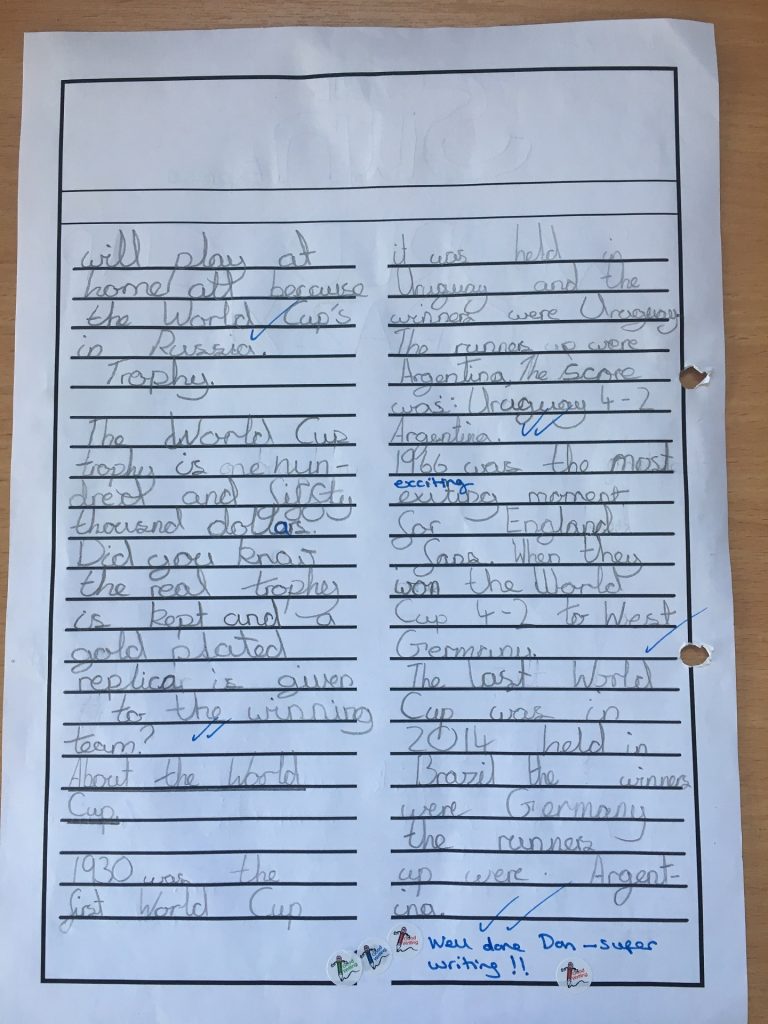 will play at
home all because
the World Cup's
in Russia.
Trophy.
The World Cup
trophy is one hun-
dred and fifty
thousand dollars.
Did you know
the real trophy
is kept and a
gold plated
replica is given
to the winning
team?
About the World
Cup.
1930 was the
first World Cup
it was held in
Uruguay and the
winners were Uraguay
The runners up were
Argentina. The score
was: Uraguay 4-2
Argentina.
1966 was the most
exciting
exiting moment
for England
fans. When they
won the World
Cup 4-2 to West
Germany.
The last World
Cup was in
2014 held in
Brazil the winners
were Germany
the runners
up were Argent-
ina.
Well done Dan - super
writing!!